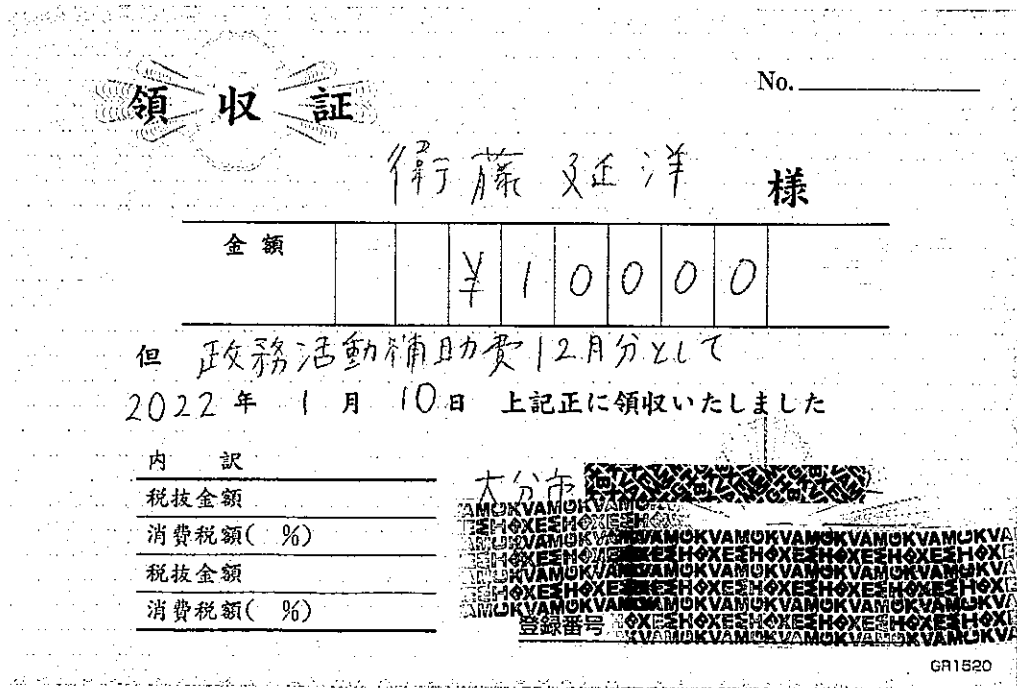 No.
領 収 証
衛藤 延洋 様
金額 ¥10000
但 政務活動補助費12月分として
2022年 1月 10日 上記正に領収いたしました
内 訳
税抜金額
消費税額( %)
税抜金額
消費税額( %)
大分市
登録番号
GR1520